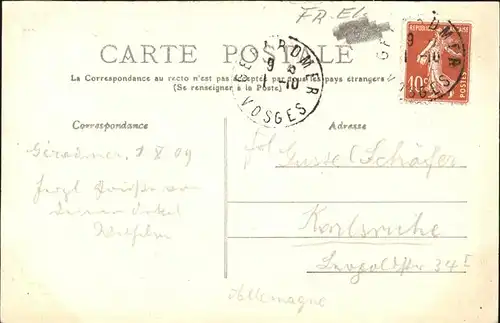 FR.El.
CARTE POSTALE
La Correspondance au recto n'est pas acceptée par tous les pays étrangers
(Se renseigner à la Poste)
GERARDMER
9
1 -10
VOSGES
REPUBLIQUE FRANCAISE
10c
POSTES
Correspondance
Gérardmer, 1 X 09
Adresse
Gustel Schäfer
Karlsruhe
Leopoldstr 34 I
Allemagne